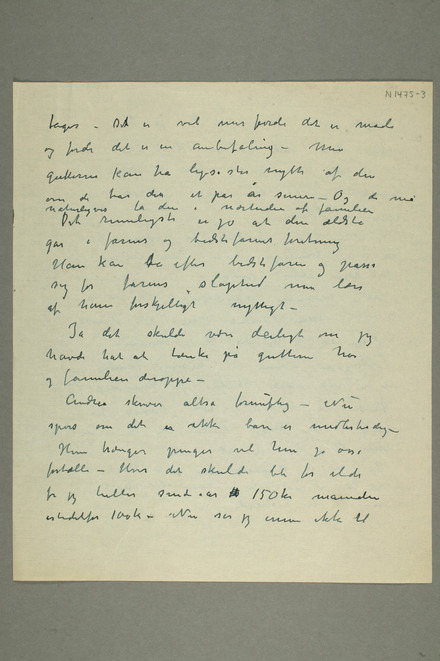 N 1475-3
tages – Det er vel mer fordi det er mode
og fordi det er en anbefaling – Men
gutterne kan ha like stor nytte af den
om de har den et par år senere – Og de må
naturligvis ta den i nærheden af familien
Det rimeligste er jo at den ældste
går i farens og bedstefarens forretning
Han kan ta efter bedstefaren og passe
sig for farens sløvhed men lære
af ham forskjelligt nyttigt –
Ja det skulde være deiligt om jeg
havde hat at tænke på guttene hos
og familien deroppe –
Andrea skriver altså fornuftig – Nu
spørs om det er ikke bare er
Hun trænger penger vel kun jo
fortælle – Hvis det skulde bli for ilde
får jeg heller sende 150 kr måneden
istedetfor 100 kr – Nu ser jeg ikke til